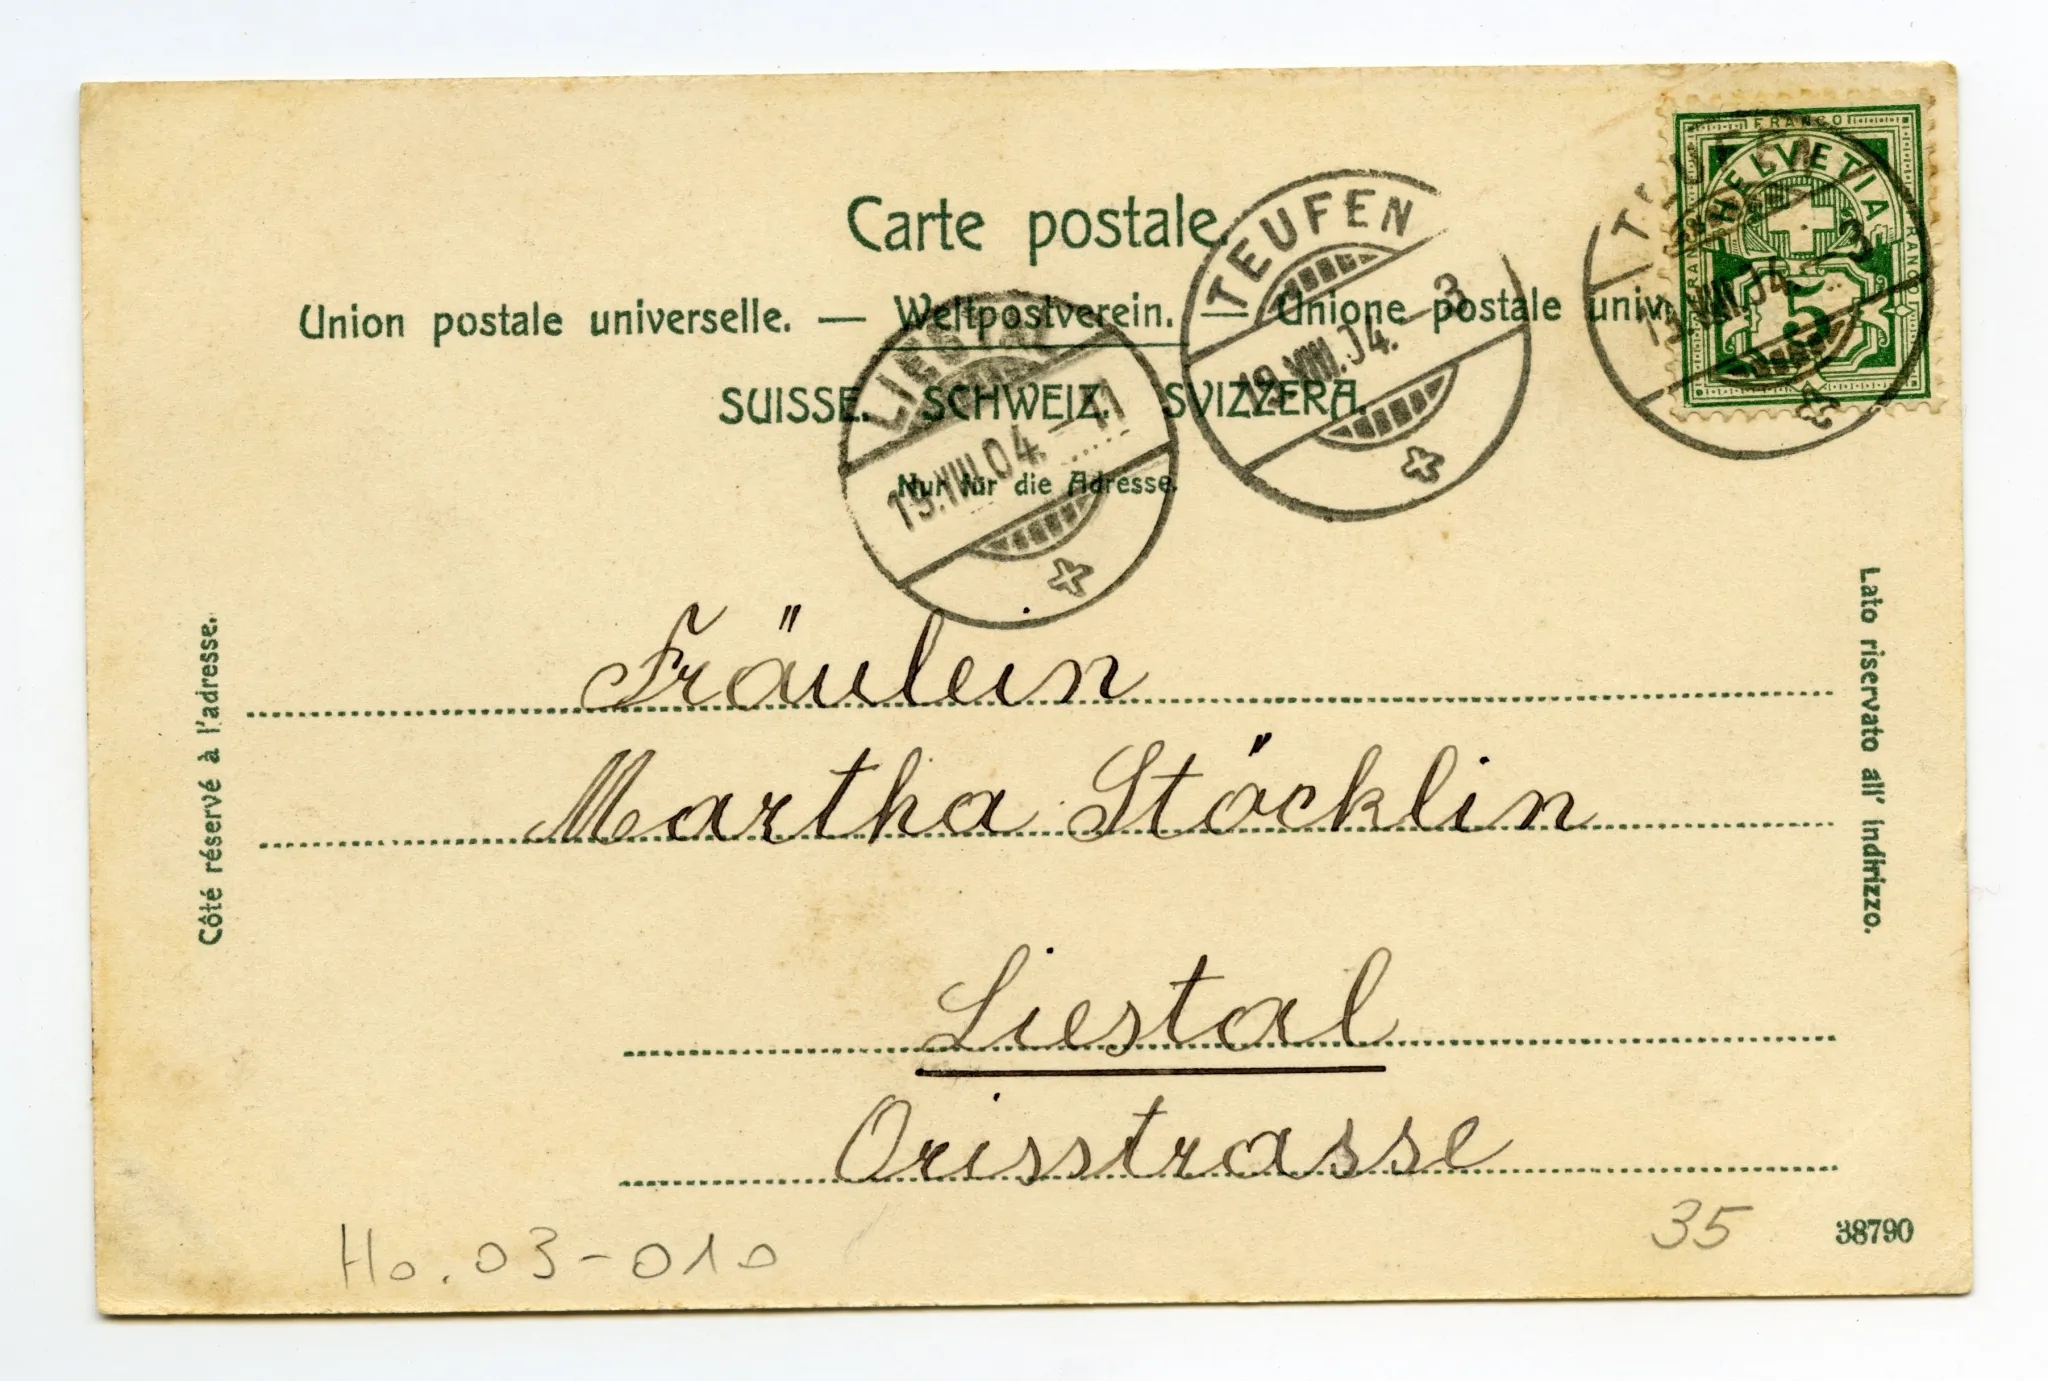 Carte postale.
Union postale universelle. — Weltpostverein. — Unione postale univ
SUISSE. SCHWEIZ. SVIZZERA.
Nur für die Adresse.
FRANCO
HELVETIA
FRANCO
FRANCO
5
TEUFEN
19.VIII.04.–3
LIESTAL
19.VIII.04.–11
VIII.04.–3
Côté réservé à l'adresse.
Lato riservato all' indirizzo.
Fräulein
Martha Stöcklin
Liestal
Orisstrasse
Ho. 03-010
35
38790